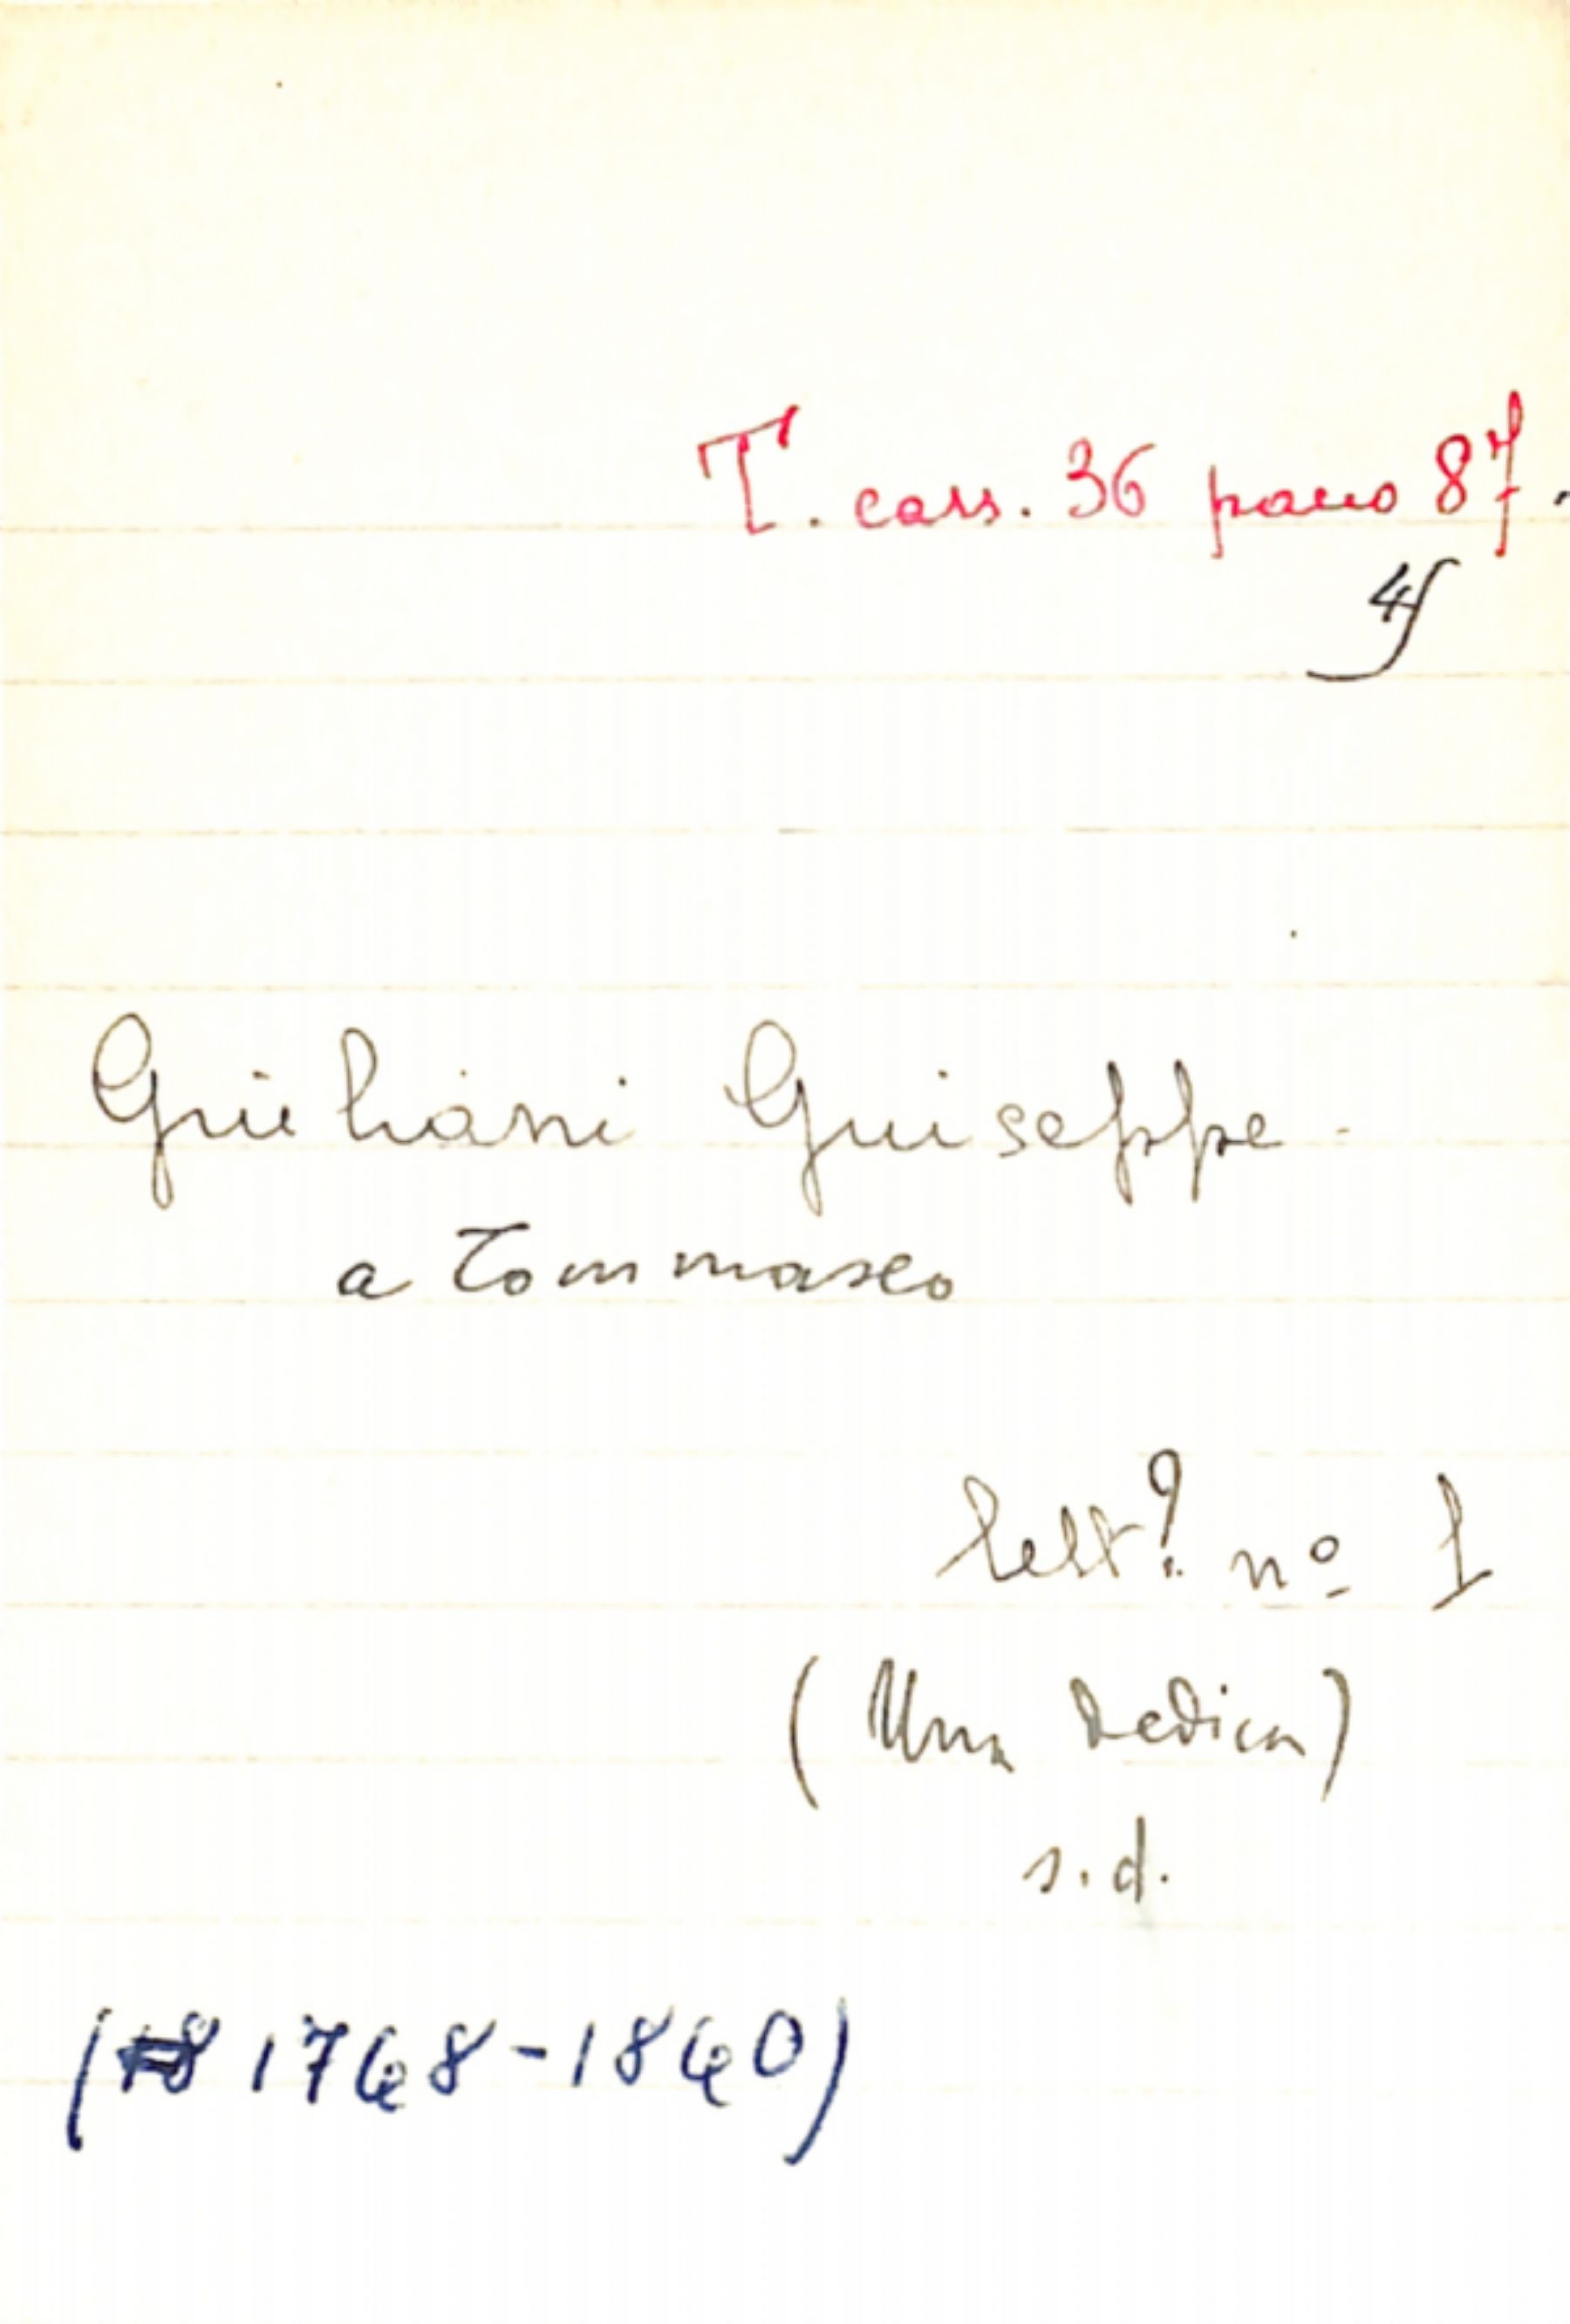 T. cass. 36 pacco 87.
4
Giuliani Giuseppe -
a Tommaseo
lett? nº 1
(Una dedica)
s.d.
(18 1768-1840)